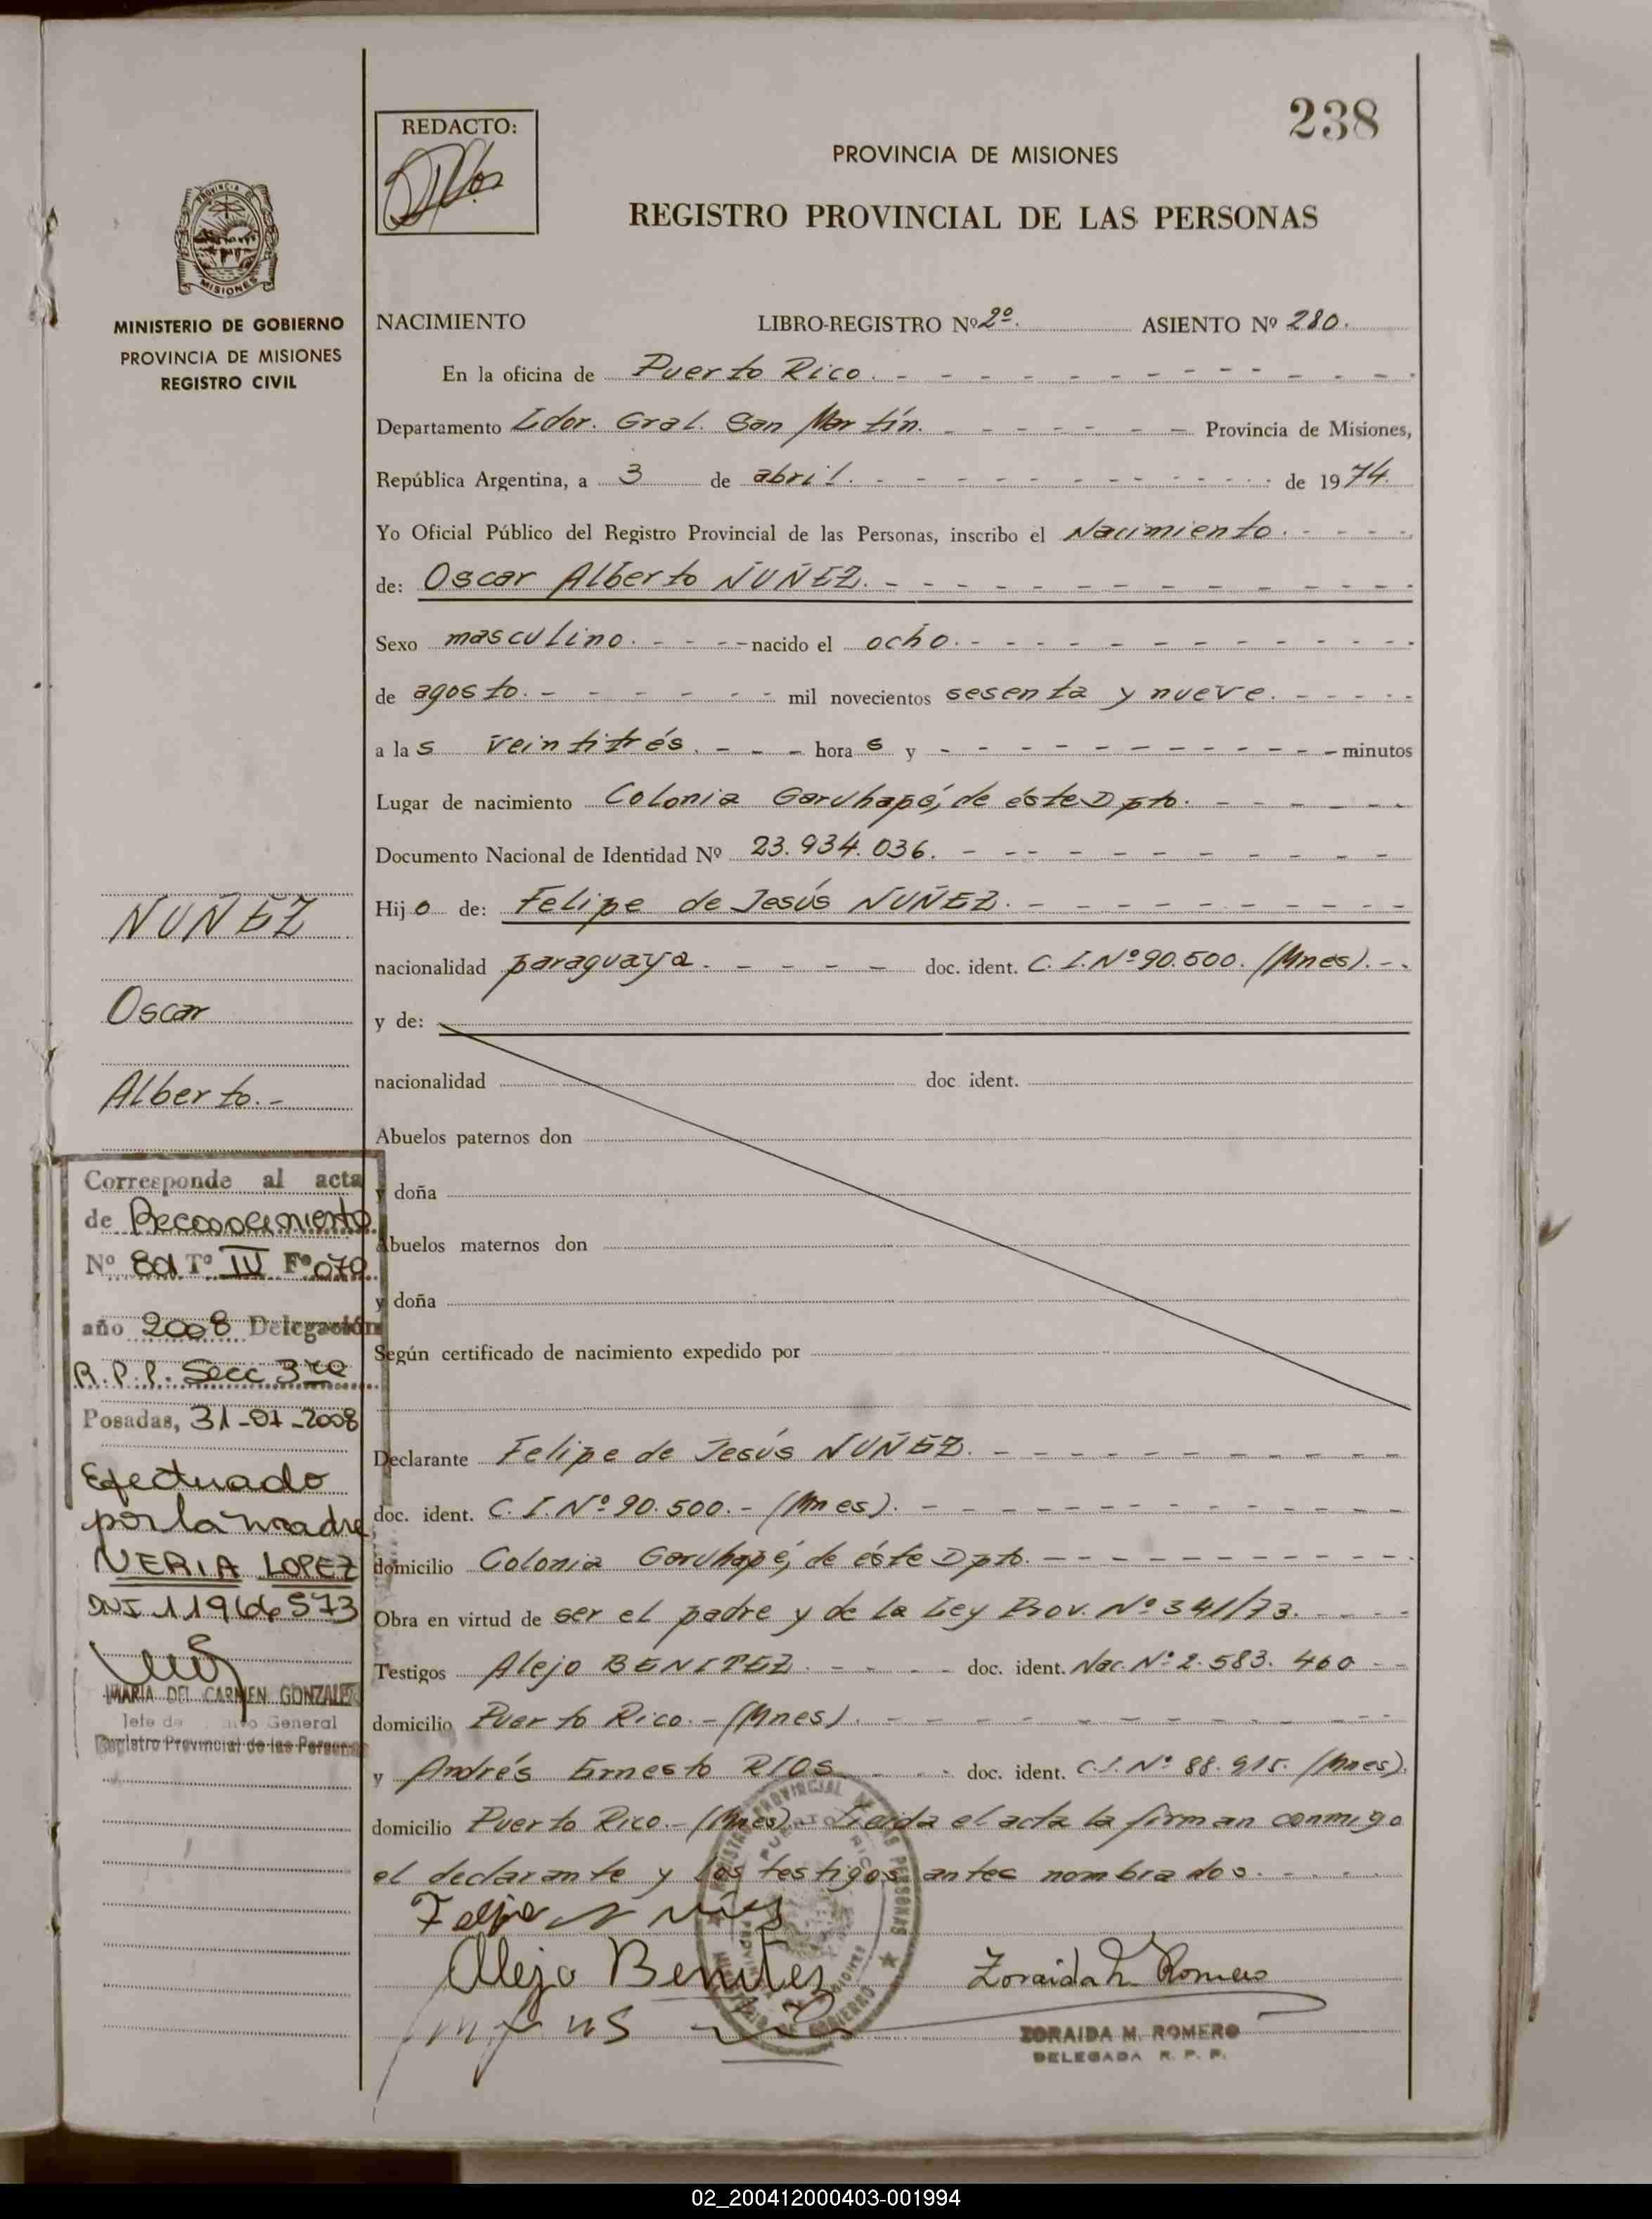 238
REDACTO:
PROVINCIA DE MISIONES
REGISTRO PROVINCIAL DE LAS PERSONAS
MISIONES
MINISTERIO DE GOBIERNO
PROVINCIA DE MISIONES
REGISTRO CIVIL
NACIMIENTO LIBRO-REGISTRO Nº 2º. ASIENTO Nº 280.
En la oficina de Puerto Rico.
Departamento Ldor. Gral. San Martín. Provincia de Misiones,
República Argentina, a 3 de abril. de 1974.
Yo Oficial Público del Registro Provincial de las Personas, inscribo el Nacimiento.
de: Oscar Alberto NUÑEZ.
Sexo masculino. nacido el ocho.
de agosto. mil novecientos sesenta y nueve.
a las veintitrés. horas y - minutos
Lugar de nacimiento Colonia Garuhapé, de éste Dpto.
Documento Nacional de Identidad Nº 23.934.036.
Hijo de: Felipe de Jesús NUÑEZ.
nacionalidad paraguaya. doc. ident. C. I. Nº 90.500. (Mnes).
y de:
nacionalidad doc ident.
Abuelos paternos don
y doña
Abuelos maternos don
y doña
Según certificado de nacimiento expedido por
Declarante Felipe de Jesús NUÑEZ.
doc. ident. C. I. Nº 90.500.- (Mnes).
domicilio Colonia Garuhapé, de éste Dpto.
Obra en virtud de ser el padre y de la Ley Prov. Nº 341/73.
Testigos Alejo BENITEZ. doc. ident. Nac. Nº 2.583.460
domicilio Puerto Rico.- (Mnes).
y Andrés Ernesto RIOS doc. ident. C.I. Nº 88.915. (Mnes).
domicilio Puerto Rico.- (Mnes).- Leída el acta la firman conmigo
el declarante y los testigos antes nombrados.
Alejo Benitez
Zoraida M. Romero
ZORAIDA M. ROMERO
DELEGADA R. P. P.
NUÑEZ
Oscar
Alberto.-
Corresponde al acta
de Reconocimiento
Nº 801 Tº IV Fº 070
año 2008 Delegación
R.P.P. Secc 3ra
Posadas, 31-07-2008
Efectuado
por la madre
NERIA LOPEZ
DNI 11966573
MARIA DEL CARMEN GONZALEZ
Jefe de General
Registro Provincial de las Personas
02_200412000403-001994